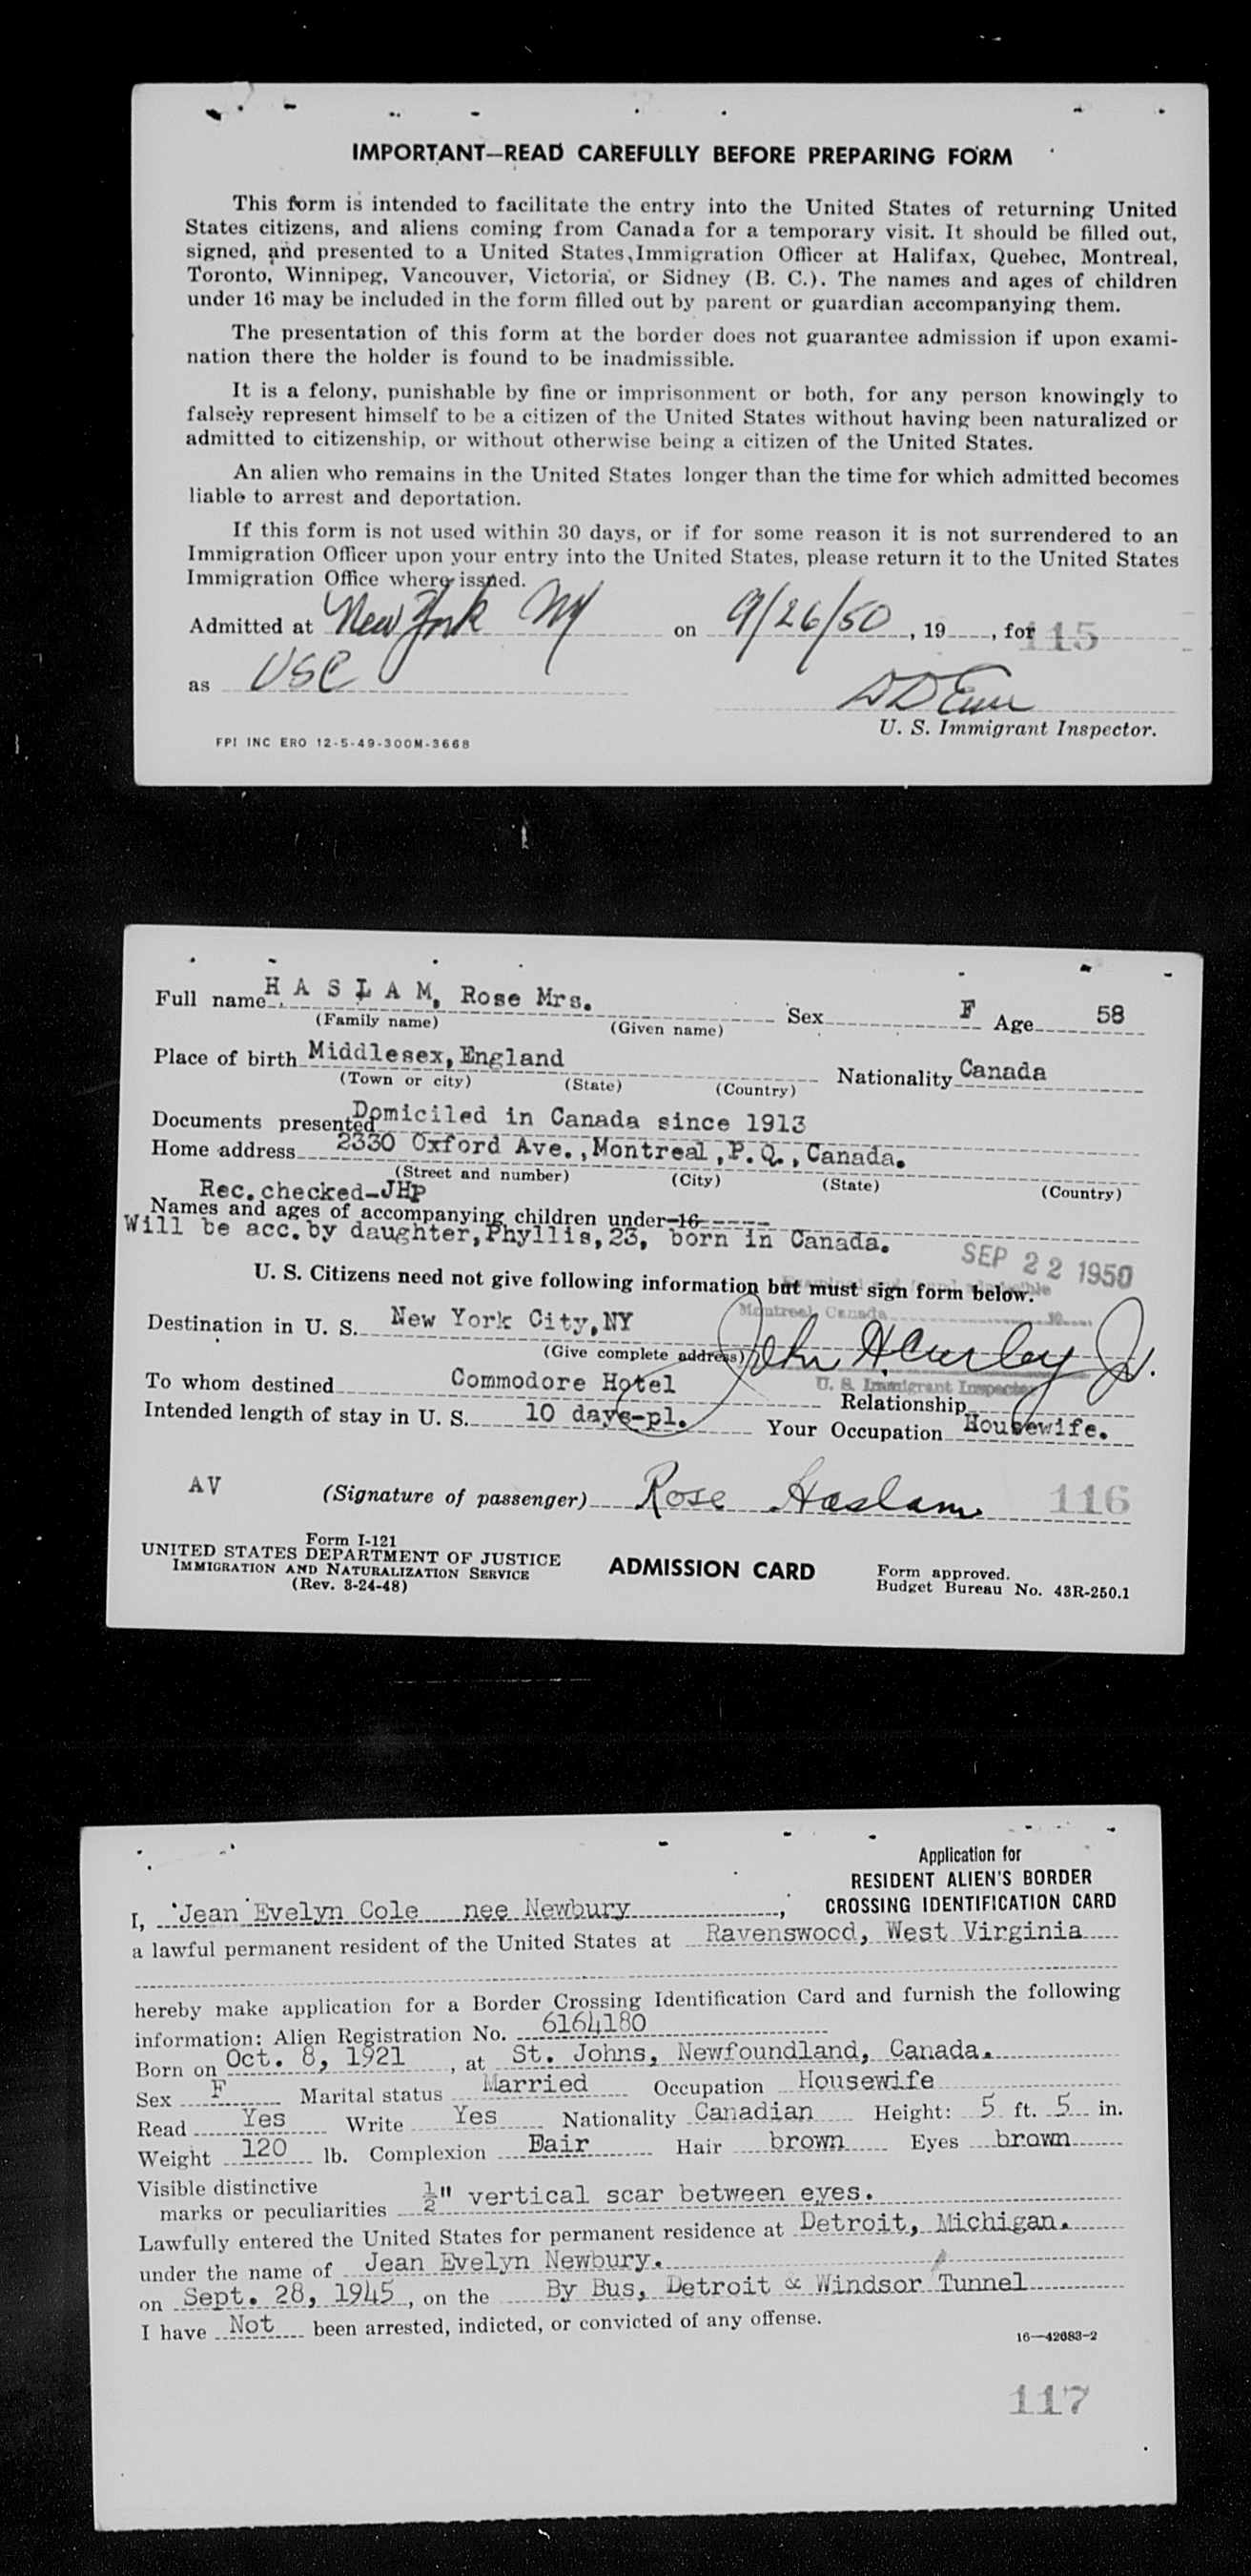 IMPORTANT—READ CAREFULLY BEFORE PREPARING FORM
This form is intended to facilitate the entry into the United States of returning United
States citizens, and aliens coming from Canada for a temporary visit. It should be filled out,
signed, and presented to a United States Immigration Officer at Halifax, Quebec, Montreal,
Toronto, Winnipeg, Vancouver, Victoria, or Sidney (B. C.). The names and ages of children
under 16 may be included in the form filled out by parent or guardian accompanying them.
The presentation of this form at the border does not guarantee admission if upon exami-
nation there the holder is found to be inadmissible.
It is a felony, punishable by fine or imprisonment or both, for any person knowingly to
falsely represent himself to be a citizen of the United States without having been naturalized or
admitted to citizenship, or without otherwise being a citizen of the United States.
An alien who remains in the United States longer than the time for which admitted becomes
liable to arrest and deportation.
If this form is not used within 30 days, or if for some reason it is not surrendered to an
Immigration Officer upon your entry into the United States, please return it to the United States
Immigration Office where issued.
Admitted at New York NY on 9/26/50, 19, for 115
as USC
U. S. Immigrant Inspector.
FPI INC ERO 12-5-49-300M-3668
Full name HASLAM, Rose Mrs. Sex F Age 58
(Family name) (Given name)
Place of birth Middlesex, England Nationality Canada
(Town or city) (State) (Country)
Documents presented Domiciled in Canada since 1913
Home address 2330 Oxford Ave., Montreal, P.Q., Canada.
(Street and number) (City) (State) (Country)
Rec. checked-JHP
Names and ages of accompanying children under 16
Will be acc. by daughter, Phyllis, 23, born in Canada.
SEP 22 1950
U. S. Citizens need not give following information but must sign form below.
Montreal, Canada
Destination in U. S. New York City, NY
(Give complete address)
John H Curley Jr.
To whom destined Commodore Hotel
U. S. Immigrant Inspector
Relationship
Intended length of stay in U. S. 10 days-pl. Your Occupation Housewife.
AV (Signature of passenger) Rose Haslam 116
Form I-121
UNITED STATES DEPARTMENT OF JUSTICE
IMMIGRATION AND NATURALIZATION SERVICE
(Rev. 8-24-48)
ADMISSION CARD
Form approved.
Budget Bureau No. 43R-250.1
Application for
RESIDENT ALIEN'S BORDER
CROSSING IDENTIFICATION CARD
I, Jean Evelyn Cole nee Newbury,
a lawful permanent resident of the United States at Ravenswood, West Virginia
hereby make application for a Border Crossing Identification Card and furnish the following
information: Alien Registration No. 6164180
Born on Oct. 8, 1921, at St. Johns, Newfoundland, Canada.
Sex F Marital status Married Occupation Housewife
Read Yes Write Yes Nationality Canadian Height: 5 ft. 5 in.
Weight 120 lb. Complexion Fair Hair brown Eyes brown
Visible distinctive
marks or peculiarities ½" vertical scar between eyes.
Lawfully entered the United States for permanent residence at Detroit, Michigan.
under the name of Jean Evelyn Newbury.
on Sept. 28, 1945, on the By Bus, Detroit & Windsor Tunnel
I have Not been arrested, indicted, or convicted of any offense.
16—42683-2
117